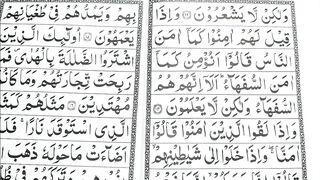 وَلٰكِنْ لَّا يَشْعُرُوْنَ ۝ وَاِذَا
قِيْلَ لَهُمْ اٰمِنُوْا كَمَاۤ اٰمَنَ
النَّاسُ قَالُوْۤا اَنُؤْمِنُ كَمَاۤ
اٰمَنَ السُّفَهَآءُ ؕ اَلَاۤ اِنَّهُمْ هُمُ
السُّفَهَآءُ وَلٰكِنْ لَّا يَعْلَمُوْنَ ۝
وَاِذَا لَقُوا الَّذِيْنَ اٰمَنُوْا قَالُوْۤا
اٰمَنَّا ۖۚ وَاِذَا خَلَوْا اِلٰى شَيٰطِيْنِهِمْ ۙ
بِهِمْ وَيَمُدُّهُمْ فِيْ طُغْيَانِهِمْ
يَعْمَهُوْنَ ۝ اُولٰٓئِكَ الَّذِيْنَ
اشْتَرَوُا الضَّلٰلَةَ بِالْهُدٰى ۪ فَمَا
رَبِحَتْ تِّجَارَتُهُمْ وَمَا كَانُوْا
مُهْتَدِيْنَ ۝ مَثَلُهُمْ كَمَثَلِ
الَّذِى اسْتَوْقَدَ نَارًا ۚ فَلَمَّاۤ
اَضَآءَتْ مَا حَوْلَهٗ ذَهَبَ